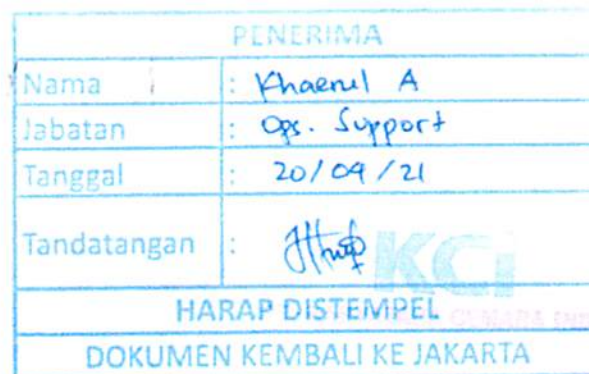 PENERIMA
Nama : Khaerul A
Jabatan : Ops. Support
Tanggal : 20/09/21
Tandatangan :
KCI
HARAP DISTEMPEL
DOKUMEN KEMBALI KE JAKARTA